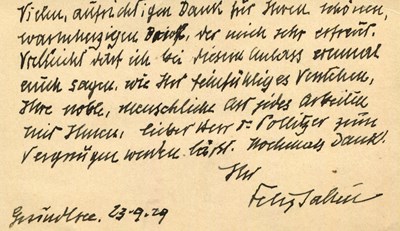 Vielen, aufrichtigen Dank für Ihren schönen,
warmherzigen Brief, der mich sehr erfreut.
Vielleicht darf ich bei diesem Anlass einmal
auch sagen, wie Ihr feinfühliges Verstehen,
Ihre noble, menschliche Art jedes Arbeiten
mit Ihnen, lieber Herr Dr Pollitzer zum
Vergnügen werden lässt. Nochmals Dank!
Ihr
Felix Salten
Grundlsee. 23-9-29